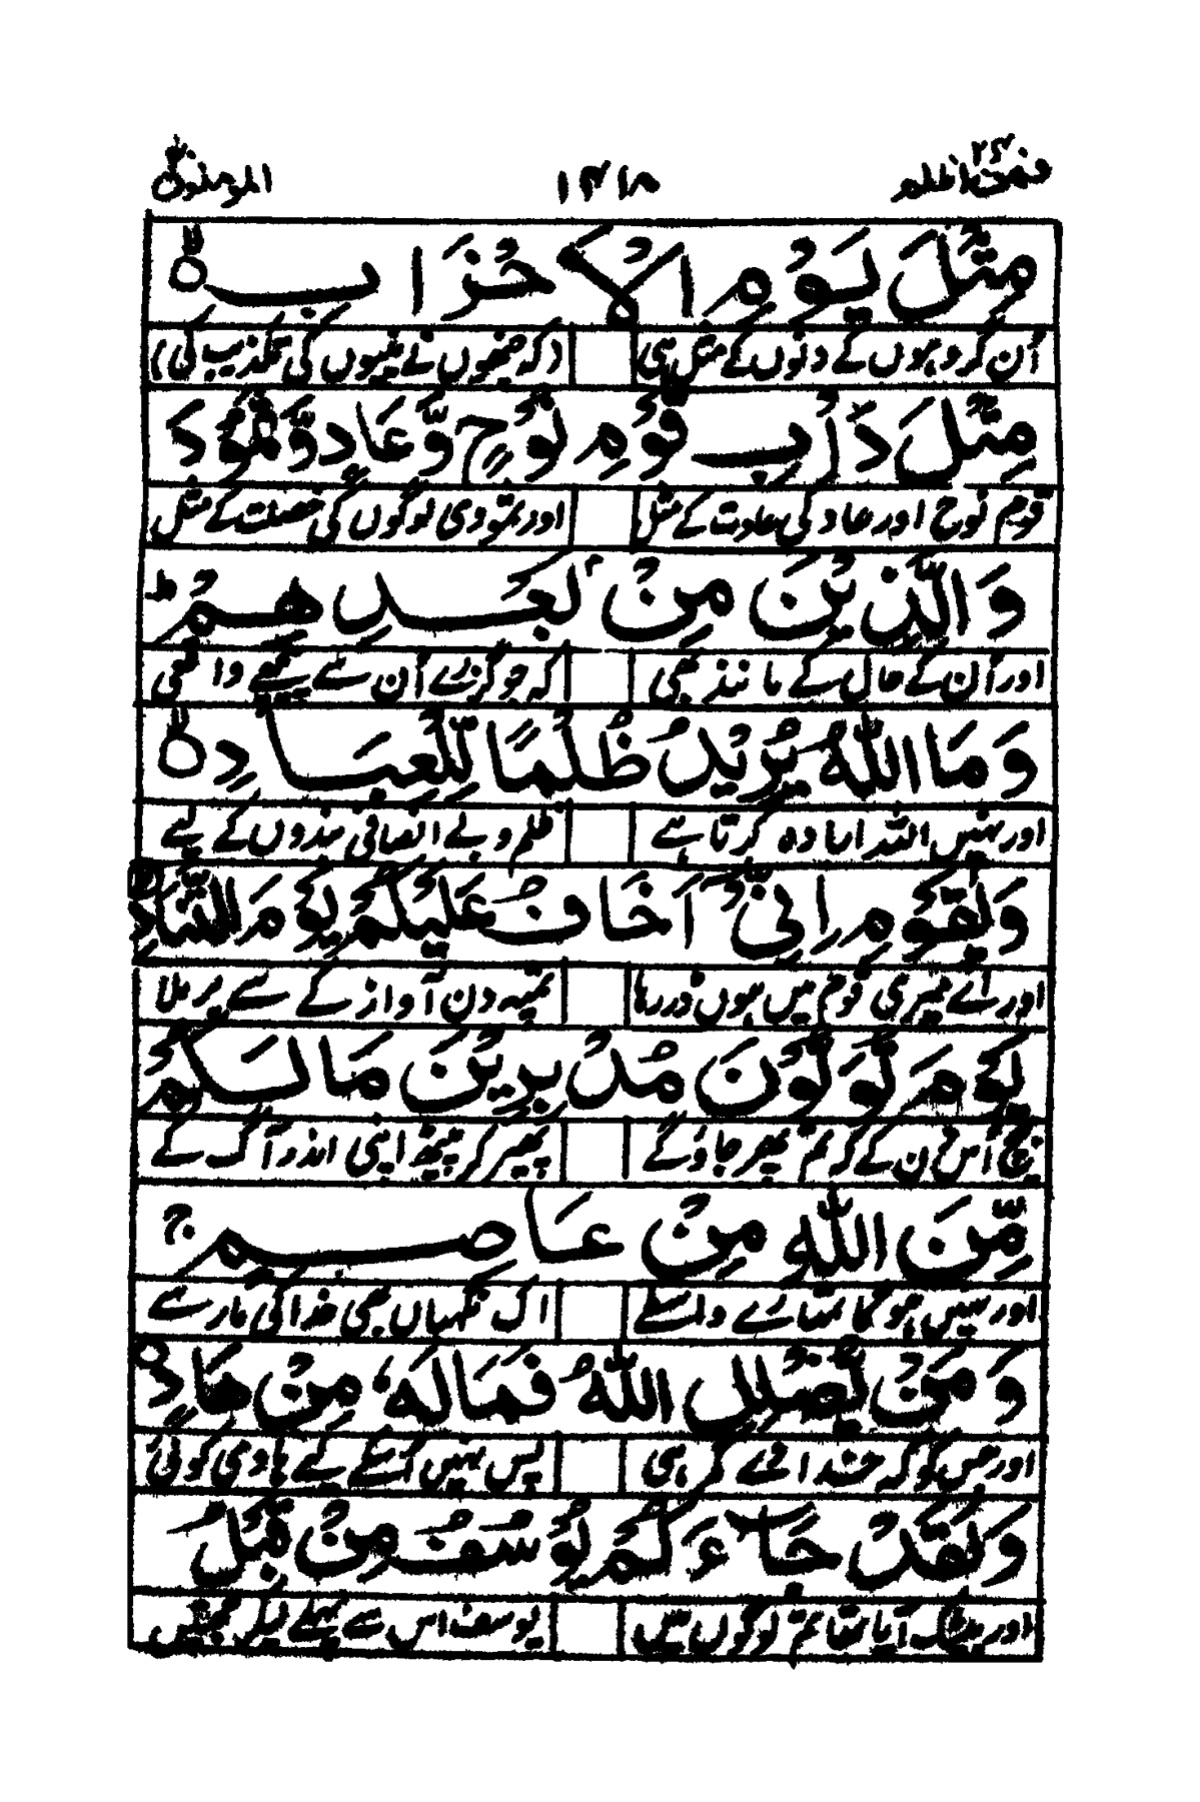 فمن اظلم ۲۴ ۱۳۱۸ المومنون
مِّثْلَ يَوْمِ الْاَحْزَابِ
اُن گروہوں کے دنوں کے مثل ہی (کہ جنھوں نے نبیوں کی تکذیب کی)
مِثْلَ دَاْبِ قَوْمِ نُوْحٍ وَّعَادٍ وَّثَمُوْدَ
قوم نوح اور عاد کی عادت کے مثل اور ثمودی لوگوں کی خصلت کے مثل
وَالَّذِيْنَ مِنْ بَعْدِهِمْ ط
اور اُن کے حال کے مانند بھی کہ جو گزرے اُن سے پیچھے واقعی
وَمَا اللّٰهُ يُرِيْدُ ظُلْمًا لِّلْعِبَادِ
اور نہیں اللہ ارادہ کرتا ہے ظلم و بے انصافی بندوں کے لیے
وَيٰقَوْمِ اِنِّيْٓ اَخَافُ عَلَيْكُمْ يَوْمَ التَّنَادِ
اور اے میری قوم میں ہوں ڈر رہا تمپہ دن آواز کے سے بر ملا
يَوْمَ تُوَلُّوْنَ مُدْبِرِيْنَ مَا لَكُمْ
اُس دن کے کہ تم پھر جاؤ گے پھیر کر پیٹھ اپنی اندر آگ کے
مِّنَ اللّٰهِ مِنْ عَاصِمٍ ج
اور نہیں ہوگا تمہارے واسطے اک نگہباں بھی خدا کی مار سے
وَمَنْ يُّضْلِلِ اللّٰهُ فَمَا لَهٗ مِنْ هَادٍ
اور جس کو کہ خدا دے گمرہی پس نہیں اسکے لیے ہادی کوئی
وَلَقَدْ جَآءَكُمْ يُوْسُفُ مِنْ قَبْلُ
اور بیشک آیا تھا تم لوگوں میں یوسف اس سے پہلے لیکر